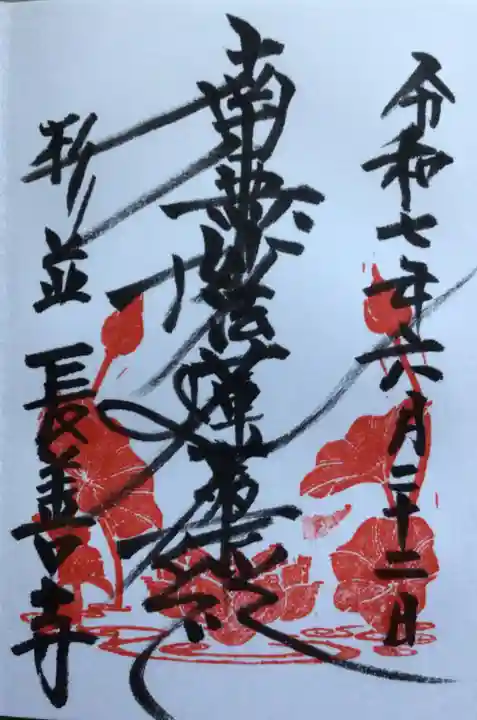 令和七年六月二十二日
南無妙法蓮華経
杉並 長善寺